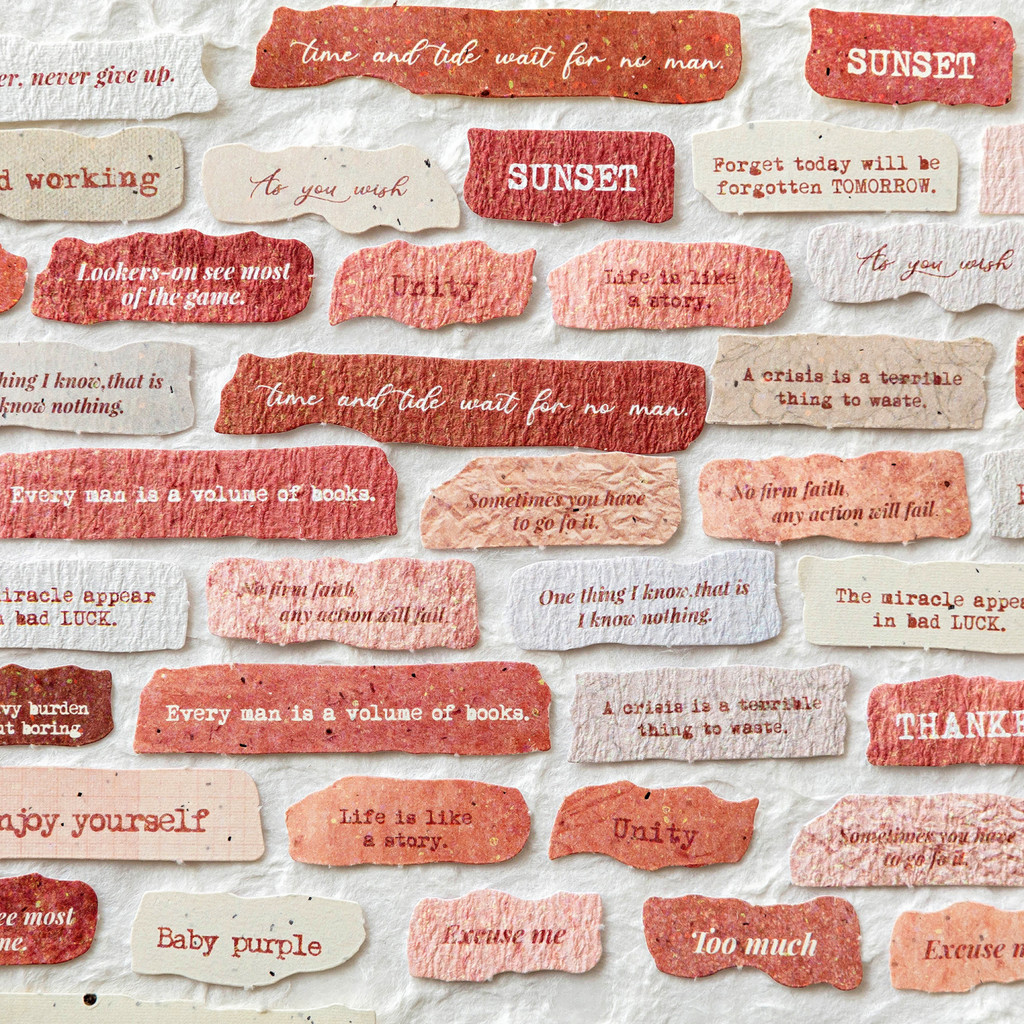 er, never give up.
time and tide wait for no man.
SUNSET
d working
As you wish
SUNSET
Forget today will be
forgotten TOMORROW.
Lookers-on see most
of the game.
Unity
Life is like
a story.
As you wish
hing I know,that is
know nothing.
time and tide wait for no man.
A crisis is a terrible
thing to waste.
Every man is a volume of books.
Sometimes you have
to go fo it.
No firm faith,
any action will fail.
iracle appear
n bad LUCK.
No firm faith,
any action will fail.
One thing I know,that is
I know nothing.
The miracle appea
in bad LUCK.
vy burden
ut boring
Every man is a volume of books.
A crisis is a terrible
thing to waste.
THANKF
njoy yourself
Life is like
a story.
Unity
Sometimes you have
to go fo it.
ee most
me.
Baby purple
Excuse me
Too much
Excuse m